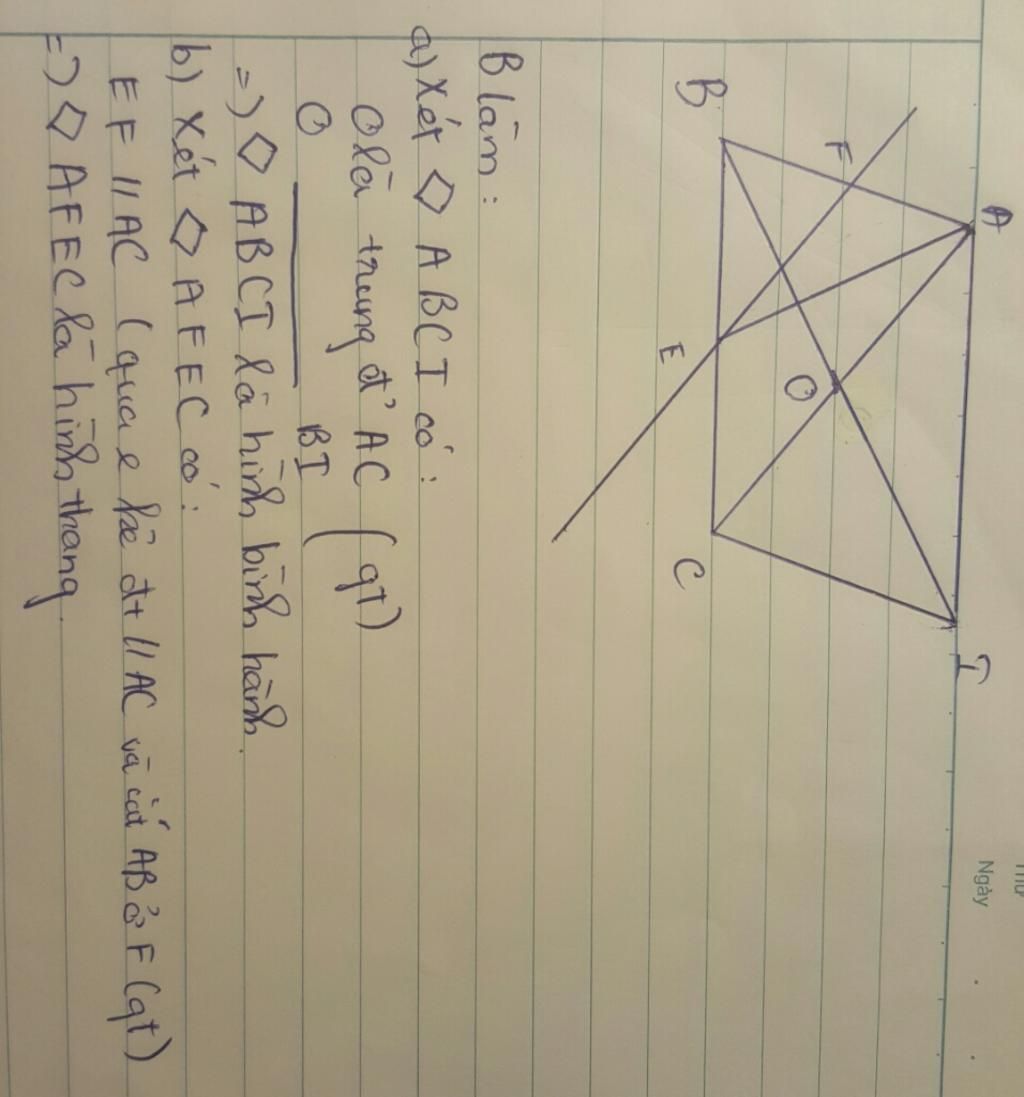 Thứ
Ngày
A
I
F
O
B
E
C
B làm:
a) Xét ◇ ABCI có:
O là trung đ' AC (gt)
O ———— BI (
=> ◇ ABCI là hình bình hành.
b) Xét ◇ AFEC có:
EF // AC (qua e kẻ đt // AC và cắt AB ở F (gt)
=> ◇ AFEC là hình thang.